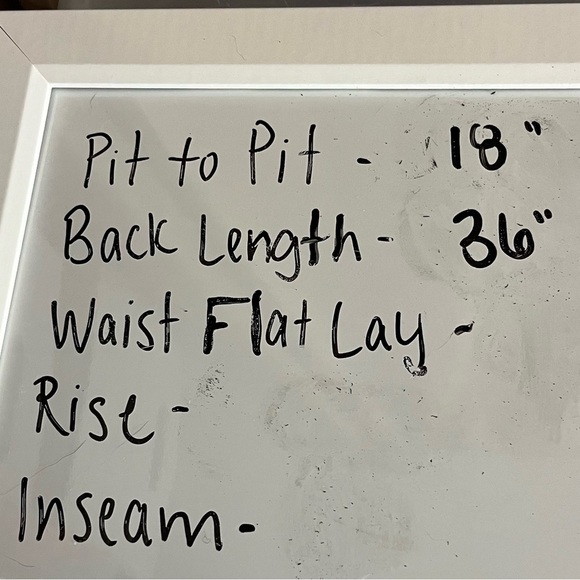 Pit to Pit - 18"
Back Length - 36"
Waist Flat Lay -
Rise -
Inseam -